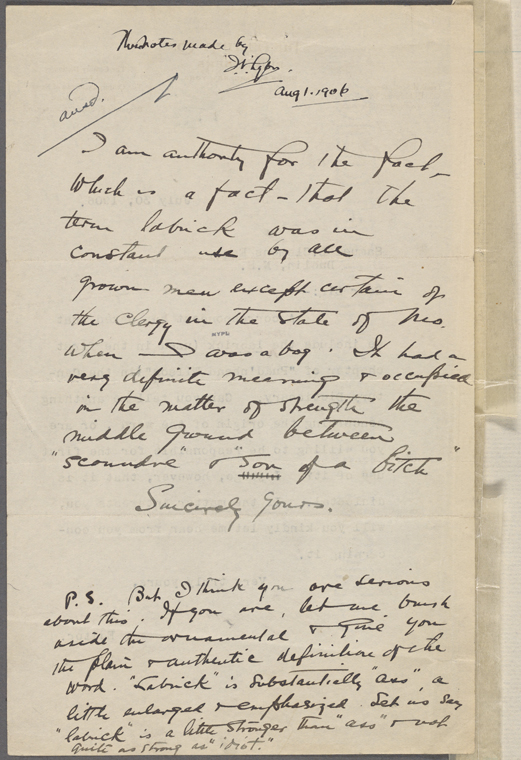 Thisnotes made by
Aug 1. 1906
ansd.
I am authority for the fact–
which is a fact – that the
term labrick was in
constant use by all
grown men except certain of
the clergy in the State of Mo.
when I was a boy. It had a
very definite meaning & occupied
in the matter of strength the
middle ground between
"scoundrel" & "Son of a bitch"
Sincerely Yours.
P.S. But I think you are serious
about this. If you are, let me brush
aside the ornamental & give you
the plain & authentic definition of the
word. "Labrick" is substantially "ass", a
little enlarged & emphasized. Let us say
"labrick" is a little stronger than "ass" & not
quite as strong as "idiot."